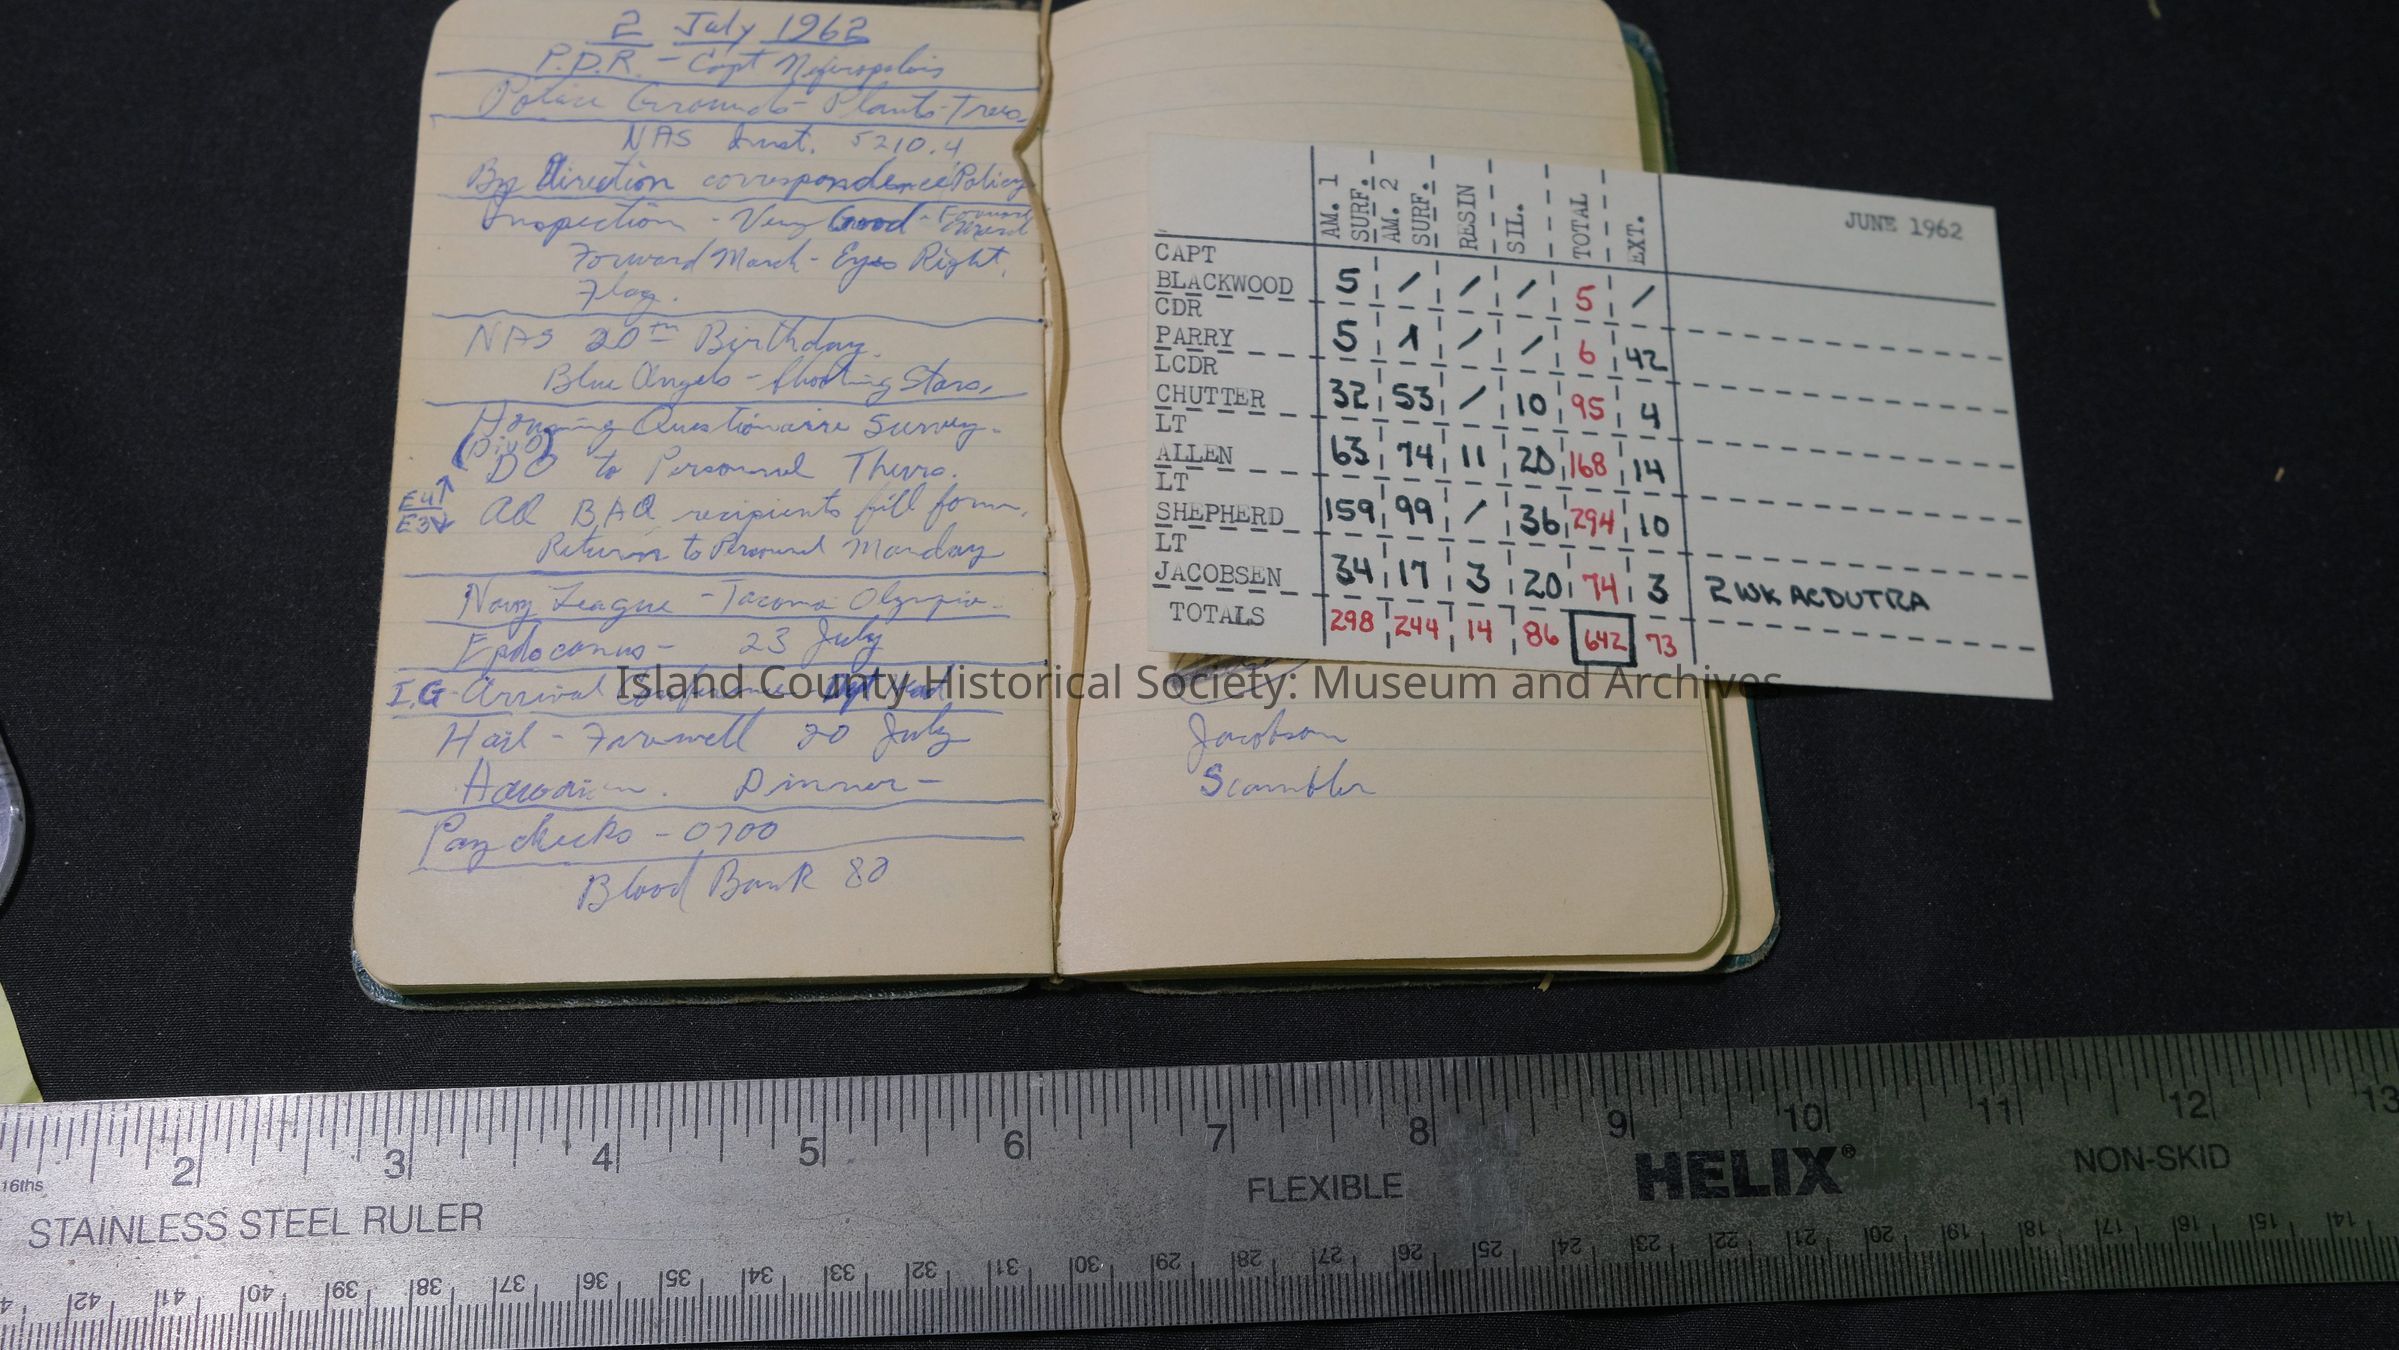 2 July 1962
P.D.R. - Capt
Police Grounds - Plants - Trees.
NAS Inst. 5210.4
By Direction correspondence Policy
Inspection - Very Good - Forward
Forward March - Eyes Right,
Flag.
NAS 20th Birthday.
Blue Angels - Shooting Stars,
Housing Questionairre Survey.
(DivO)
DO to Personnel Thurs.
E4↑
E3↓
All BAQ recipients fill form,
Return to Personnel Monday
Navy League - Tacoma Olympia.
23 July
I.G - Arrival Conference Dept Head
Hail - Farewell 20 July
Hawaiian. Dinner -
Pay checks - 0700
Blood Bank 80
JUNE 1962
AM. 1 SURF. AM. 2 SURF. RESIN SIL. TOTAL EXT.
CAPT
BLACKWOOD 5 / / / 5 /
CDR
PARRY 5 1 / / 6 42
LCDR
CHUTTER 32 53 / 10 95 4
LT
ALLEN 63 74 11 20 168 14
LT
SHEPHERD 159 99 / 36 294 10
LT
JACOBSEN 34 17 3 20 74 3 2 WK ACDUTRA
TOTALS 298 244 14 86 642 73
Jacobson
Scambler
Island County Historical Society: Museum and Archives
2 3 4 5 6 7 8 9 10 11 12 13
16ths
STAINLESS STEEL RULER
FLEXIBLE
HELIX®
NON-SKID
42 41 40 39 38 37 36 35 34 33 32 31 30 29 28 27 26 25 24 23 22 21 20 19 18 17 16 15 14